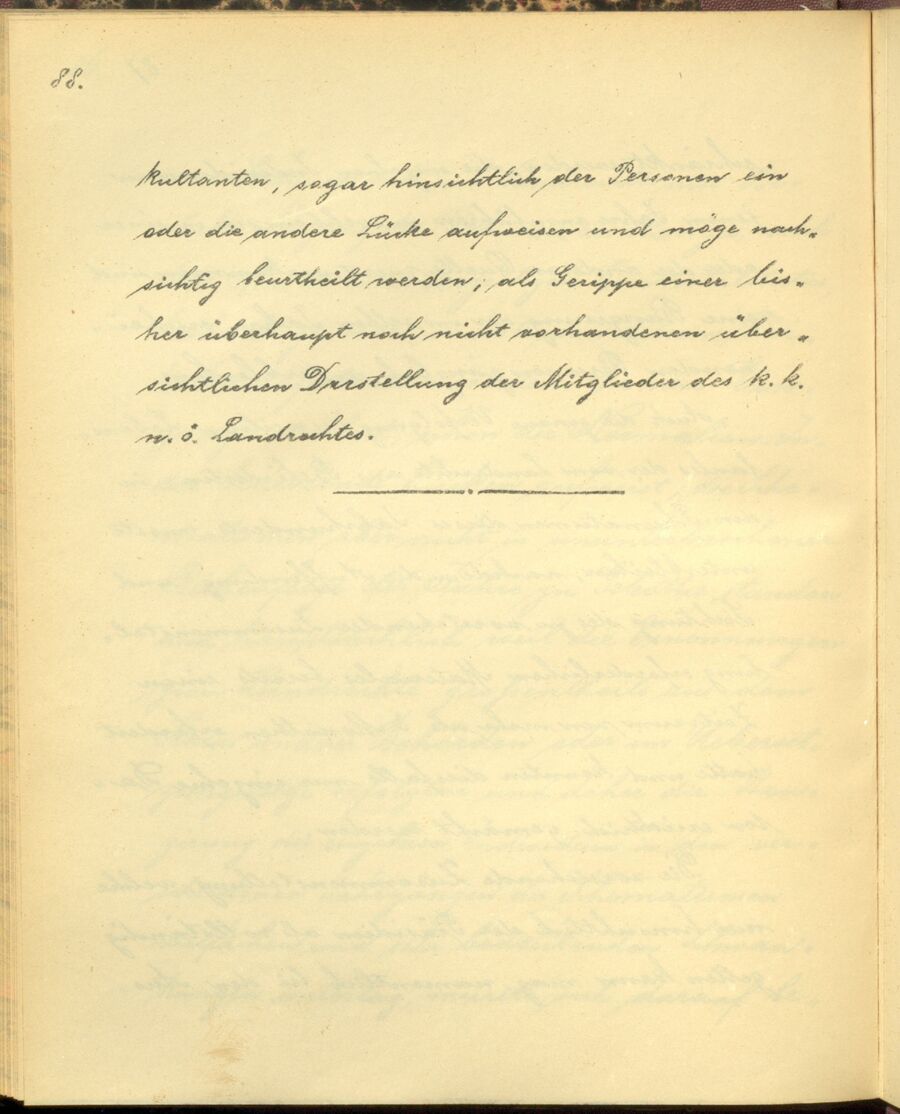 88.
kultanten, sogar hinsichtlich der Personen ein
oder die andere Lücke aufweisen und möge nach-
sichtig beurtheilt werden, als Gerippe einer bis-
her überhaupt noch nicht vorhandenen über-
sichtlichen Darstellung der Mitglieder des k. k.
n. ö. Landrechtes.